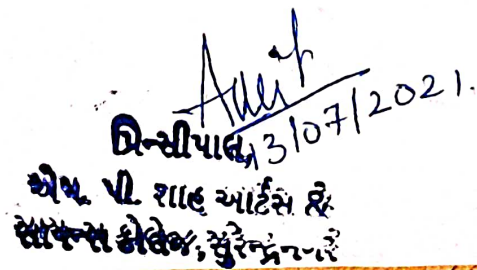 13/07/2021.
પ્રિન્સીપાલ,
એમ. પી. શાહ આર્ટસ એન્ડ
સાયન્સ કોલેજ, સુરેન્દ્રનગર